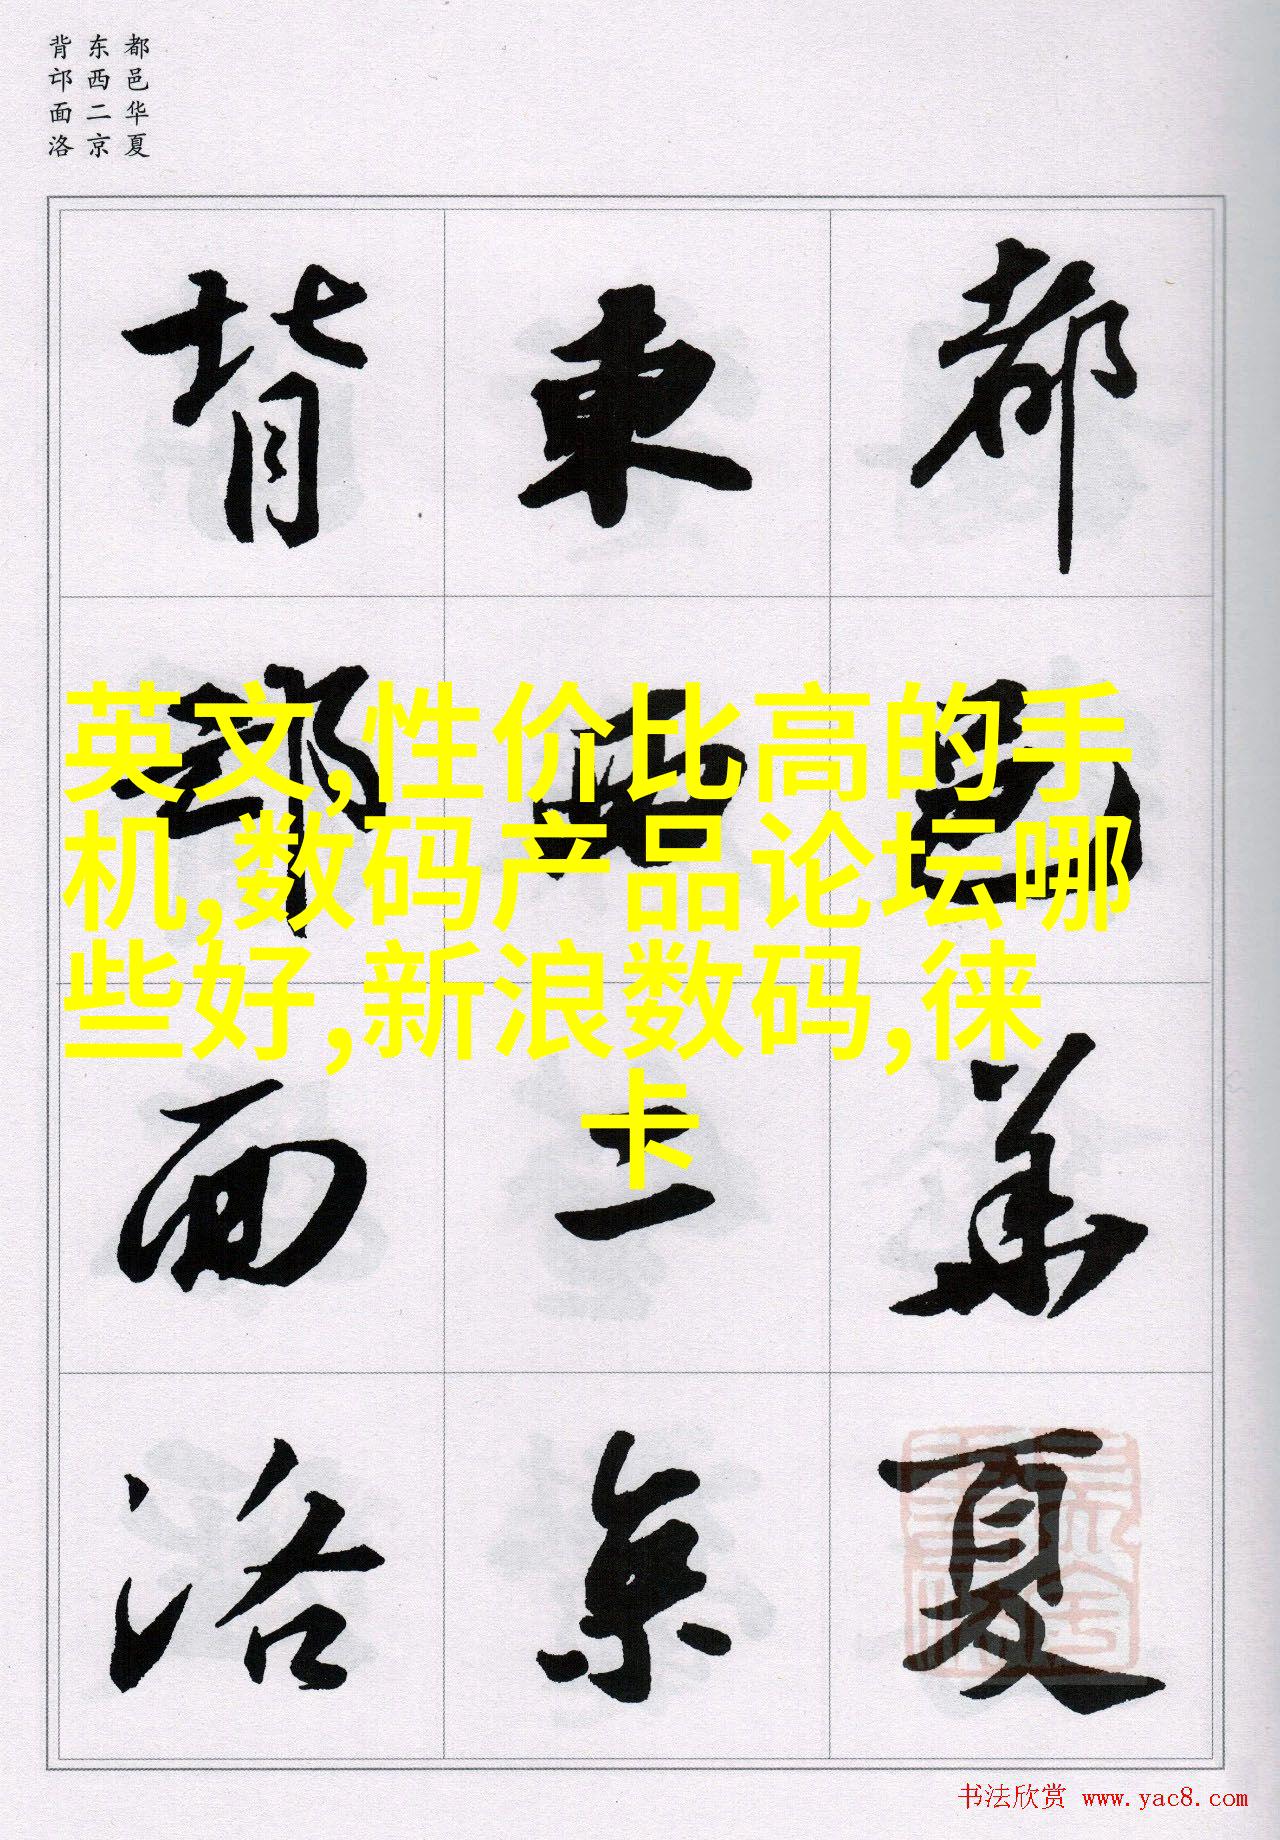 都邑华夏
东西二京
背邙面洛
都邑華夏
東西二京
背邙面洛
英文,性价比高的手
机,数码产品论坛哪
些好,新浪数码,徕
卡
书法欣赏 www.yac8.com